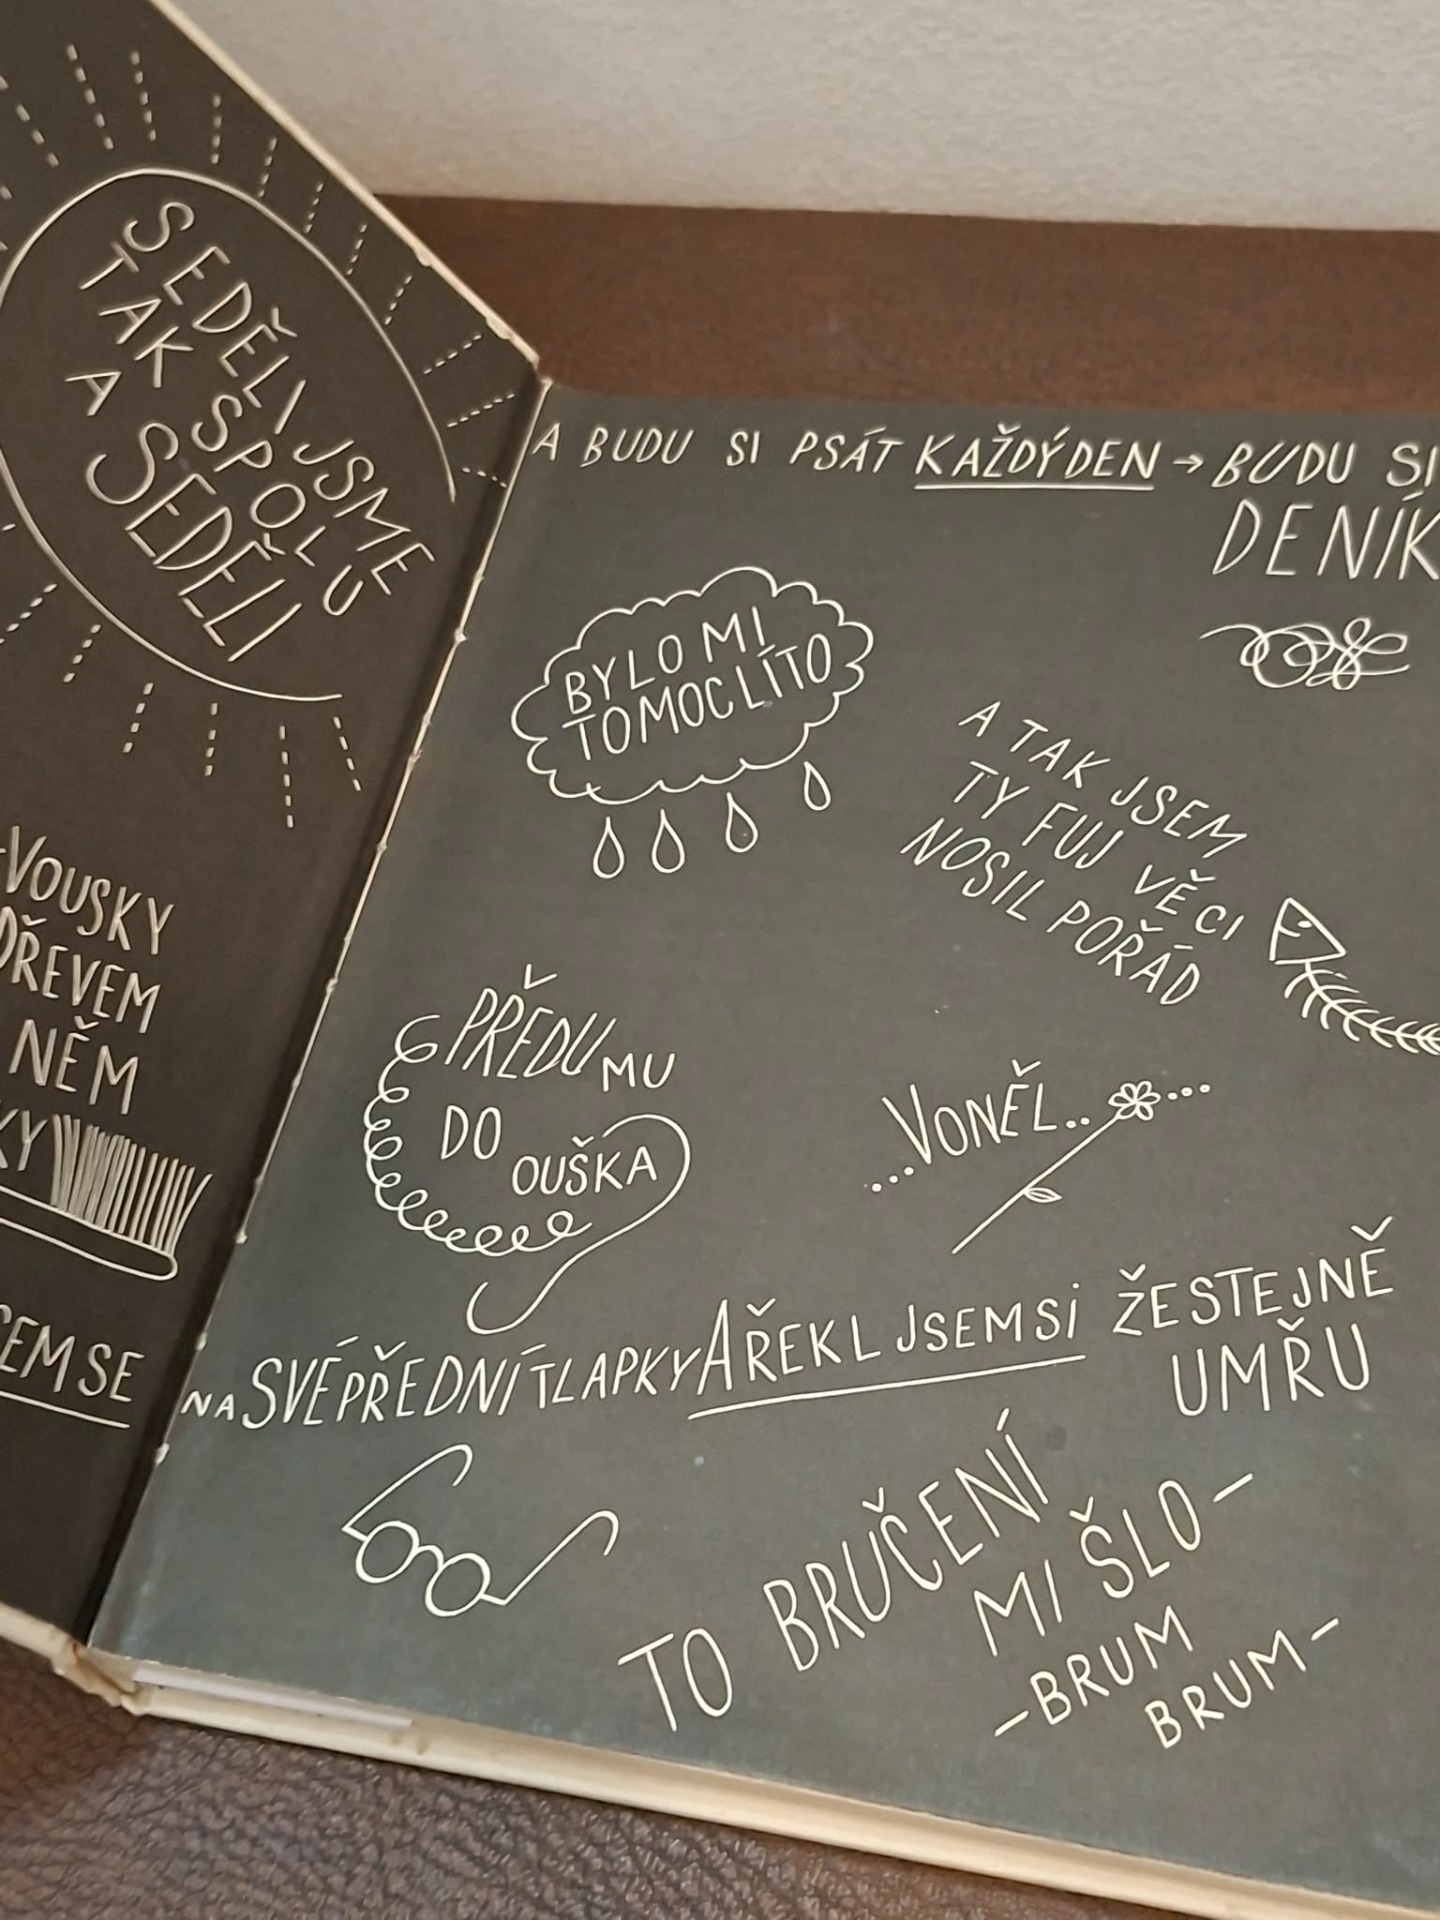 SEDĚLI JSME
TAK SPOLU
A SEDĚLI
VOUSKY
DŘEVEM
NĚM
KY
SEM SE
A BUDU SI PSÁT KAŽDÝ DEN → BUDU SI
DENÍK
BYLO MI
TO MOC LÍTO
A TAK JSEM
TY FUJ VĚCI
NOSIL POŘÁD
PŘEDU MU
DO
OUŠKA
...VONĚL.. ...
NA SVÉ PŘEDNÍ TLAPKY A ŘEKL JSEM SI ŽE STEJNĚ
UMŘU
TO BRUČENÍ
MI ŠLO –
– BRUM
BRUM –